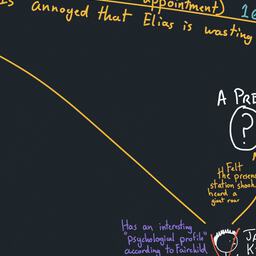 appointment)
is annoyed that Elias is wasting
A PRE
?
Felt
the presen
station shook
heard a
giant roar
Has an interesting
"psychological profile"
according to Fairchild
JA
K